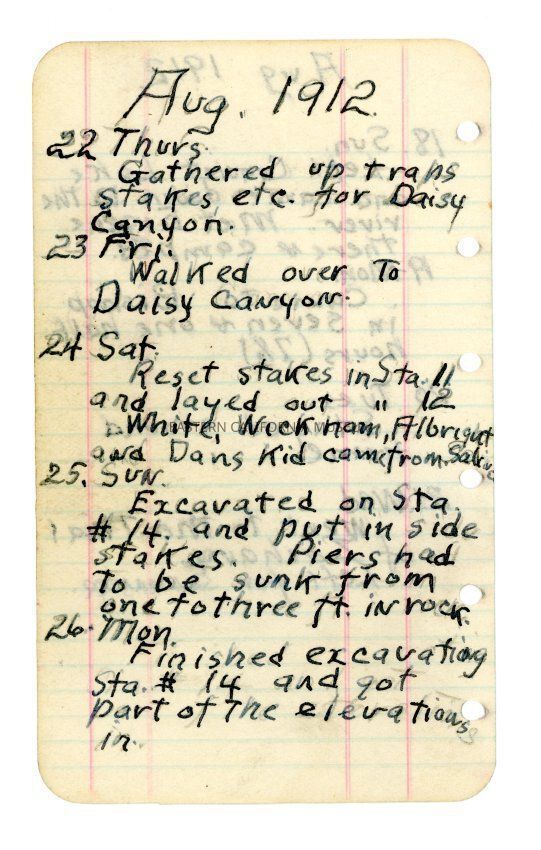 Aug. 1912.
22 Thurs.
Gathered up traps
stakes etc. for Daisy
Canyon.
23 Fri.
Walked over To
Daisy Canyon.
24 Sat.
Reset stakes in Sta. 11
and layed out " 12
White, Wickham, Albright
EASTERN CALIFORNIA MUSEUM
and Dans Kid came from Saline
25. Sun.
Excavated on Sta.
# 14. and put in side
stakes. Piers had
to be sunk from
one to three ft. in rock.
26. Mon.
Finished excavating
Sta. # 14 and got
part of the elevations
in.